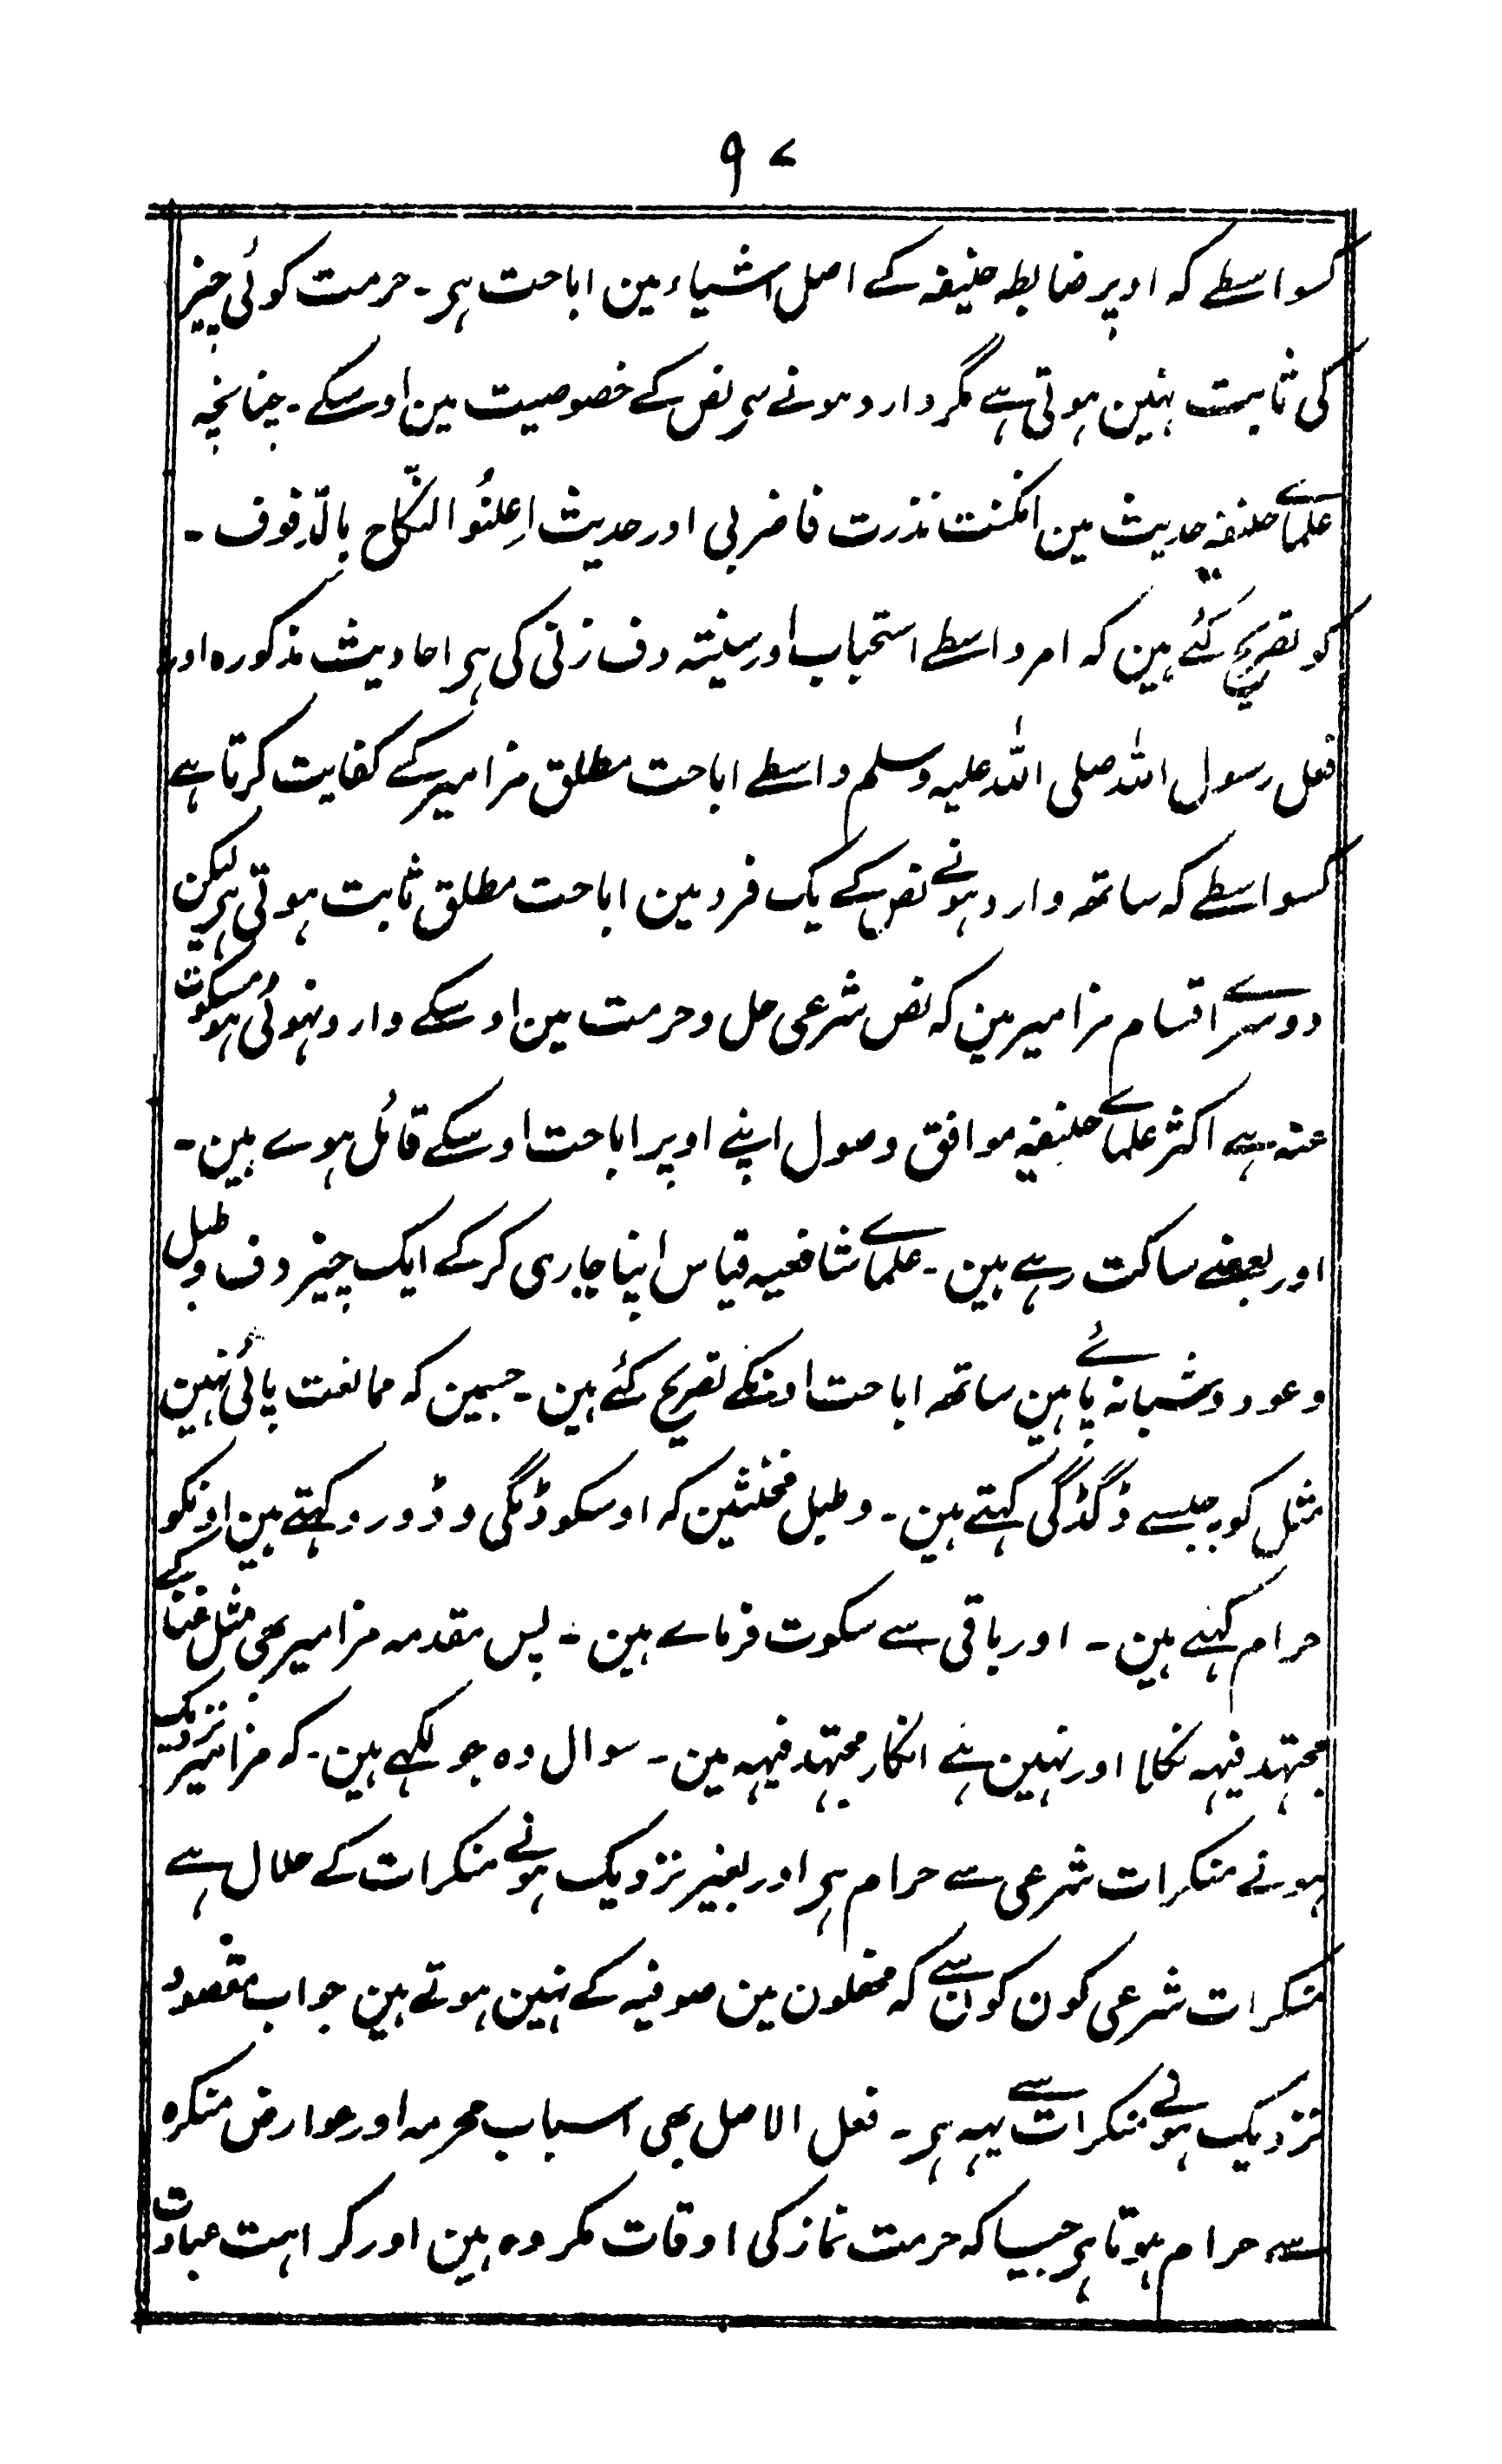 ۹۷
کسواسطے کہ اوپر ضابطہ حنیفہ کے اصل اشیاء مین اباحت ہی۔ حرمت کوئی چیز
کی ثابت نہین ہوتی ہے مگر وارد ہونے سی نص کے خصوصیت مین اوسکے۔ چنانچہ
علماے حنفیہ حدیث مین انکنت نذرت فاضربی اور حدیث اِعلنُوا النّکاح بالدّفوف۔
کو تصریح کئے ہین کہ امر واسطے استحباب اور سنیتہ دف زنی کی ہی احادیث مذکورہ اور
فعل رسول اللہ صلی اللہ علیہ وسلم واسطے اباحت مطلق مزامیر کے کفایت کرتا ہے
کسواسطے کہ ساتھ وارد ہونے نص کے یک فرد مین اباحت مطلق ثابت ہوتی ہی لیکن
دوسرے اقسام مزامیر مین کہ نص شرعی حل و حرمت مین اوسکے وارد نہوئی ہو مسکوت
عنہ ہے اکثر علماے حنیفیہ موافق وصول اپنے اوپر اباحت اوسکے قائل ہوے ہین۔
اور بعضے ساکت رہے ہین۔ علماے شافعیہ قیاس اپنا جاری کرکے ایک چیز دف و طبل
و عود و شبانہ پاے ہین ساتھ اباحت اونکے تصریح کئے ہین۔ جسمین کہ ممانعت پائی نہین
مثل کوبہ جیسے ڈگڈگی کہتے ہین۔ و طبل مخنثین کہ اوسکو ڈمگی و ڈورو کہتے ہین اونکو
حرام کہے ہین۔ اور باقی سے سکوت فرماے ہین۔ پس مقدمہ مزامیر بھی مثل غنا کے
مجتہد فیہہ نکلا اور نہین ہے انکار مجتہد فیہہ مین۔ سوال وہ جو لکھے ہین۔ کہ مزامیر نزدیک
ہونے منکرات شرعی سے حرام ہی اور بغیر نزدیک ہونے منکرات کے حلال ہے
منکرات شرعی کون کون سے کہ محفلون مین صوفیہ کے نہین ہوتے ہین جواب مقصود
نزدیک ہونے منکرات سے یہہ ہی۔ فعل الاصل بھی اسباب محرمہ اور عوارض منکرہ
سے حرام ہوتا ہی جیسا کہ حرمت نماز کی اوقات مکروہ ہین اور کراہت عبادت